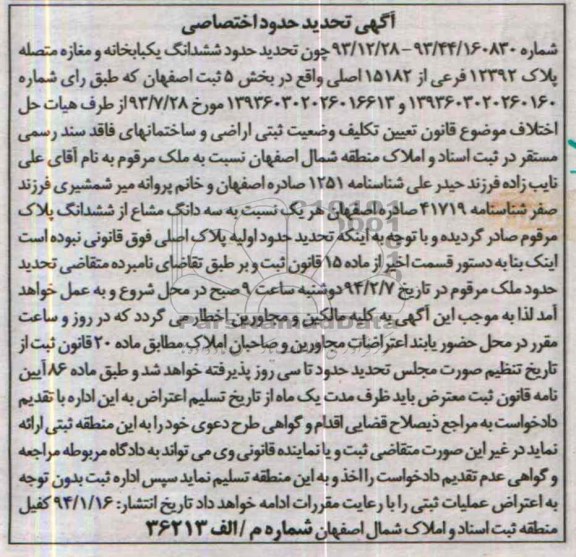 آگهی تحدید حدود اختصاصی
شماره ۹۳/۴۴/۱۶۰۸۳۰-۹۳/۱۲/۲۸ چون تحدید حدود ششدانگ یکبابخانه و مغازه متصله
پلاک ۱۲۳۹۲ فرعی از ۱۵۱۸۲ اصلی واقع در بخش ۵ ثبت اصفهان که طبق رای شماره
۱۳۹۳۶۰۳۰۲۰۲۶۰۱۶۰ و ۱۳۹۳۶۰۳۰۲۰۲۶۰۱۶۶۱۳ مورخ ۹۳/۷/۲۸ از طرف هیات حل
اختلاف موضوع قانون تعیین تکلیف وضعیت ثبتی اراضی و ساختمانهای فاقد سند رسمی
مستقر در ثبت اسناد و املاک منطقه شمال اصفهان نسبت به ملک مرقوم به نام آقای علی
نایب زاده فرزند حیدر علی شناسنامه ۱۲۵۱ صادره اصفهان و خانم پروانه میر شمشیری فرزند
صفر شناسنامه ۴۱۷۱۹ صادره اصفهان هر یک نسبت به سه دانگ مشاع از ششدانگ پلاک
مرقوم صادر گردیده و با توجه به اینکه تحدید حدود اولیه پلاک اصلی فوق قانونی نبوده است
اینک بنا به دستور قسمت اخیر از ماده ۱۵ قانون ثبت و بر طبق تقاضای نامبرده متقاضی تحدید
حدود ملک مرقوم در تاریخ ۹۴/۲/۷ دوشنبه ساعت ۹ صبح در محل شروع و به عمل خواهد
آمد لذا به موجب این آگهی به کلیه مالکین و مجاورین اخطار می گردد که در روز و ساعت
مقرر در محل حضور یابند اعتراضات مجاورین و صاحبان املاک مطابق ماده ۲۰ قانون ثبت از
تاریخ تنظیم صورت مجلس تحدید حدود تا سی روز پذیرفته خواهد شد و طبق ماده ۸۶ آیین
نامه قانون ثبت معترض باید ظرف مدت یک ماه از تاریخ تسلیم اعتراض به این اداره با تقدیم
دادخواست به مراجع ذیصلاح قضایی اقدام و گواهی طرح دعوی خود را به این منطقه ثبتی ارائه
نماید در غیر این صورت متقاضی ثبت و یا نماینده قانونی وی می تواند به دادگاه مربوطه مراجعه
و گواهی عدم تقدیم دادخواست را اخذ و به این منطقه تسلیم نماید سپس اداره ثبت بدون توجه
به اعتراض عملیات ثبتی را با رعایت مقررات ادامه خواهد داد تاریخ انتشار: ۹۴/۱/۱۶ کفیل
منطقه ثبت اسناد و املاک شمال اصفهان شماره م/الف ۳۶۲۱۳
ParsNamadData